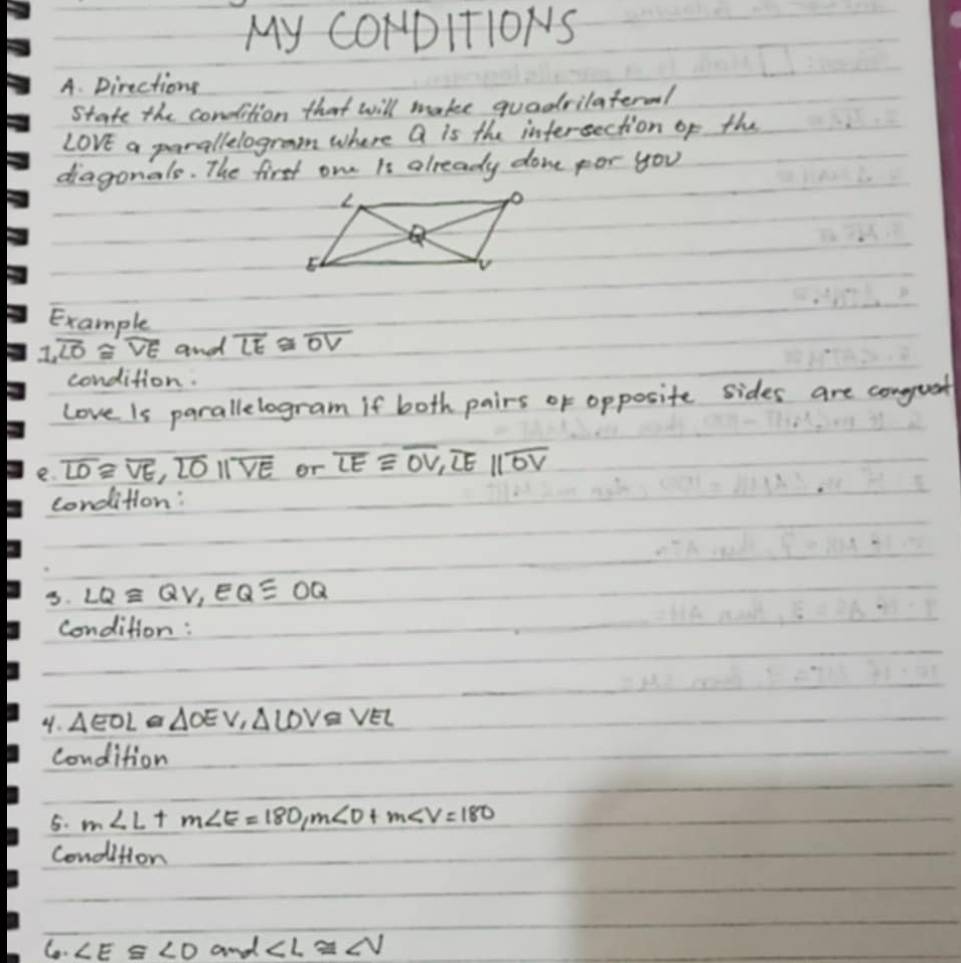 MY CONDITIONS
A. Directions
State the condition that will make quadrilateral
LOVE a parallelogram where Q is the intersection of the
diagonals. The first one Is already done for you
L
O
Q
E
V
Example
1. L̅O̅ ≅ V̅E̅ and L̅E̅ ≅ O̅V̅
condition:
Love Is parallelogram if both pairs of opposite sides are congruent
e. L̅O̅ ≅ V̅E̅, L̅O̅ || V̅E̅ or L̅E̅ ≅ O̅V̅, L̅E̅ || O̅V̅
condition:
3. LQ ≅ QV, EQ ≅ OQ
Condition:
4. ΔEOL ≅ ΔOEV, ΔLOV ≅ VEL
Condition
5. m∠L + m∠E = 180, m∠O + m∠V = 180
Condition
6. ∠E ≅ ∠O and ∠L ≅ ∠V